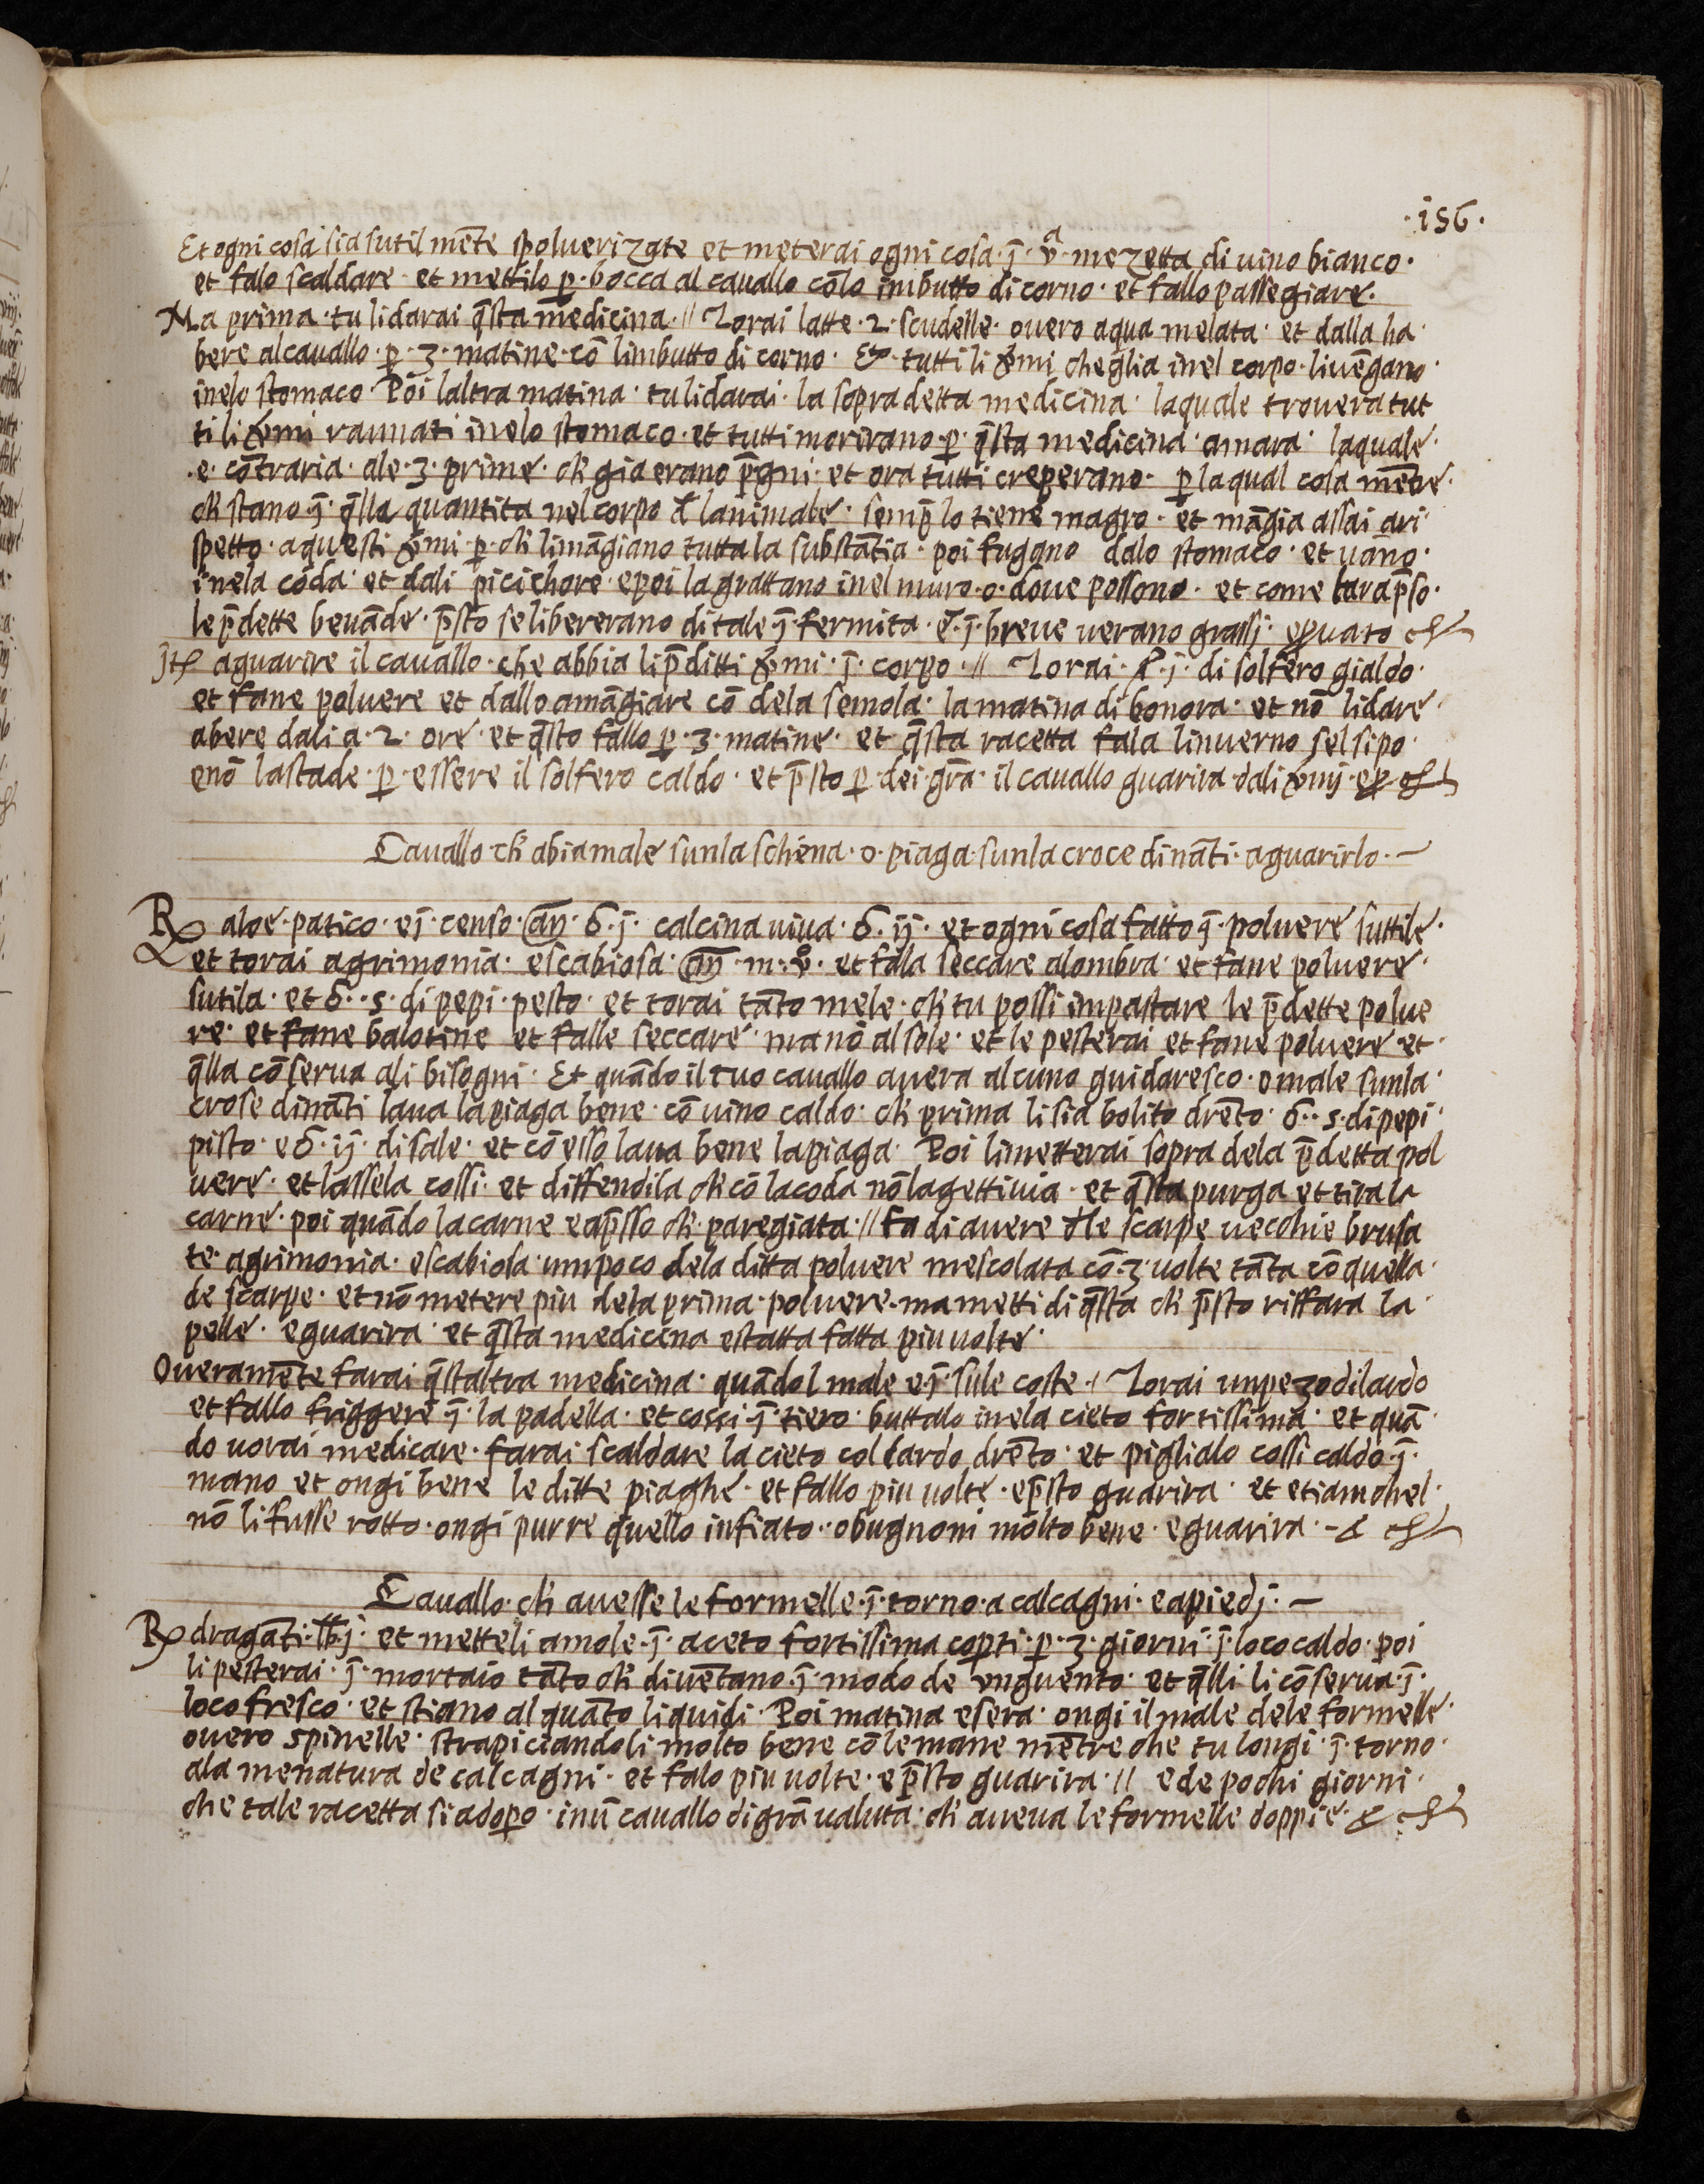 ·156·
Et ogni cosa sia sutil mēte spoluerizate et meterai ogni cosa · j̄ · vᵃ · mezetta di uino bianco ·
et falo scaldare · et mettilo p̱ · bocca al cauallo cōlo imbutto di corno · et fallo passegiare ·
Ma prima · tu li darai q̄sta medicina · // Torai latte · 2 · scudelle · ouero aqua melata · et dalla ha ·
bere al cauallo · p̱ · 3 · matine · cō limbutto di corno · Et · tutti li v̄mi che glia inel corpo · li uēgano ·
inelo stomaco · Poi laltra matina · tu li darai · la sopra detta medicina · la quale trouera tut
ti li v̄mi raunati inelo stomaco · et tutti morirano · p̱ · q̄sta medicina · amara · laquale ·
· e · cōtraria · ale · 3 · prime · ch̄ gia erano p̄gni · et ora tutti creperano · p̱ la qual cosa mētre ·
ch̄ stano j̄ · q̄lla quantita nel corpo đ lanimale · semp̄ lo tiene magro · et māgia assai ari ·
spetto · a questi v̄mi · p̱ · ch̄ li māgiano tutta la substātia · poi fugano dalo stomaco · et uāno ·
inela coda · et dali picichore · e poi la grattano inel muro · o · doue possono · et come lara p̄so ·
le p̄dette beuāde · p̄sto se libererano di tale j̄ · fermita · e · j̄ · breue uerano grassj ·
Jtē aguarire il cauallo · che abbia li p̄ditti v̄mi · j̄ · corpo · // Torai · j̄ · di solfero gialdo ·
et fane poluere et dallo a māgiare cō dela semola · la matina di bonora · et nō li dare ·
abere dali a · 2 · ore · et q̄sto fallo p̱ · 3 · matine · et q̄sta racetta fala linuerno sel si po ·
e nō lastade · p̱ · essere il solfero caldo · et p̄sto p̱ · dei · grā · il cauallo guarira dali v̄mj ·
Cauallo · ch̄ abia male sun la schena · o · piaga · sun la croce dināti · aguarirlo · —
℞ aloe · patico · e j̄ · censo · an̄ · δ · j · calcina uiua · δ · ij · et ogni cosa fatto j̄ · poluere suttile ·
et torai agrimonia · e scabiosa · an̄ · m · vº · et fala seccare alombra · et fane poluere ·
sutila · et δ · · s · di pepi · pesto · et torai tāto mele · ch̄ tu possi impastare le p̄dette polue
re · et fane balotine et falle seccare · ma nō al sole · et le pesterai et fane poluere et ·
q̄lla cōserua ali bisogni · Et quādo il tuo cauallo auera alcuno guidaresco · o male sun la ·
crose dināti laua la piaga bene · cō uino caldo · ch̄ prima li sia bolito drēto · δ · · s · di pepi ·
pisto · e δ · ij · di sale · et cō esso laua bene la piaga · Poi li metterai sopra dela p̄detta pol
uere · et lassela cossi · et diffendila ch̄ cō la coda nō la getti uia · et q̄sta purga et tira la
carne · poi quādo la carne e ap̄sso ch̄ · paregiata · // fa di auere đle scarpe uecchie brusa
te · agrimonia · e scabiosa · un poco dela ditta poluere mescolata cō · 3 · uolte tāta cō quella ·
de scarpe · et nō metere piu dela prima · poluere · ma metti di q̄sta ch̄ p̄sto riffara la ·
pelle · e guarira · et q̄sta medicina e statta fatta piu uolte ·
Oueramēte farai q̄staltra medicina · quādol male e · j̄ · sule coste · / Torai un pezo di lardo
et fallo friggere j̄ · la padella · et cossi · j̄ · tiero · buttalo inela cieto fortissima · et quā ·
do uorai medicare · farai scaldare la cieto col lardo drēto · et piglialo cossi caldo · j̄ ·
mano et ongi bene le ditte piaghe · et fallo piu uolte · e p̄sto guarira · et etiam chel ·
nō li fusse rotto · ongi purre quello infiato · o bugnoni molto bene · e guarira ·
Cauallo · ch̄ auesse le formelle · j̄ · torno · a calcagni · e a piedj · —
℞ dragāti · lb̄ · j · et metteli amole · j̄ · aceto fortissima cop̱ti · p̱ · 3 · giorni · j̄ · loco caldo · poi
li pesterai · j̄ · mortaio tāto ch̄ diuētano · j̄ · modo de vnguento · et q̄lli li cōserua · j̄ ·
loco fresco · et stiano al quāto liquidi · Poi matina e sera · ongi il male dele formelle ·
ouero spinelle · strapiciandoli molto bene cō le mane mētre che tu longi · j̄ · torno ·
ala menatura de calcagni · et falo piu uolte · e p̄sto guarira · // e de pochi giorni ·
che tale racetta si adop̱o · in ū cauallo di grā ualuta · ch̄ aueua le formelle doppie ·